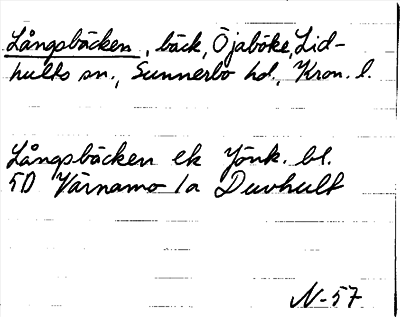 Långsbäcken, bäck, Öjaböke, Lid-
hults sn., Sunnerbo hd., Kron. l.
Långsbäcken ek Jönk. bl.
5D Värnamo 1a Duvhult
N-57